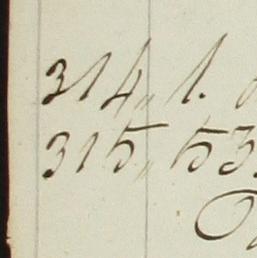 314,, 1.
315,, 53.